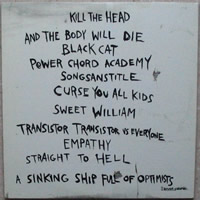 KILL THE HEAD
AND THE BODY WILL DIE
BLACK CAT
POWER CHORD ACADEMY
SONGSANSTITLE
CURSE YOU ALL KIDS
SWEET WILLIAM
TRANSISTOR TRANSISTOR IS EVERYONE
EMPATHY
STRAIGHT TO HELL
A SINKING SHIP FULL OF OPTIMISTS